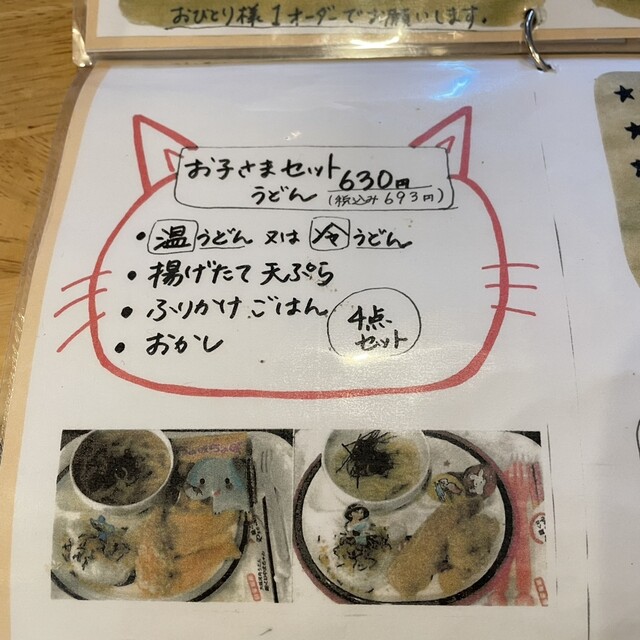 おひとり様1オーダーでお願いします。
お子さまセット
うどん
630円
(税込み693円)
・温うどん 又は 冷うどん
・揚げたて 天ぷら
・ふりかけ ごはん
・おかし
4点
セット